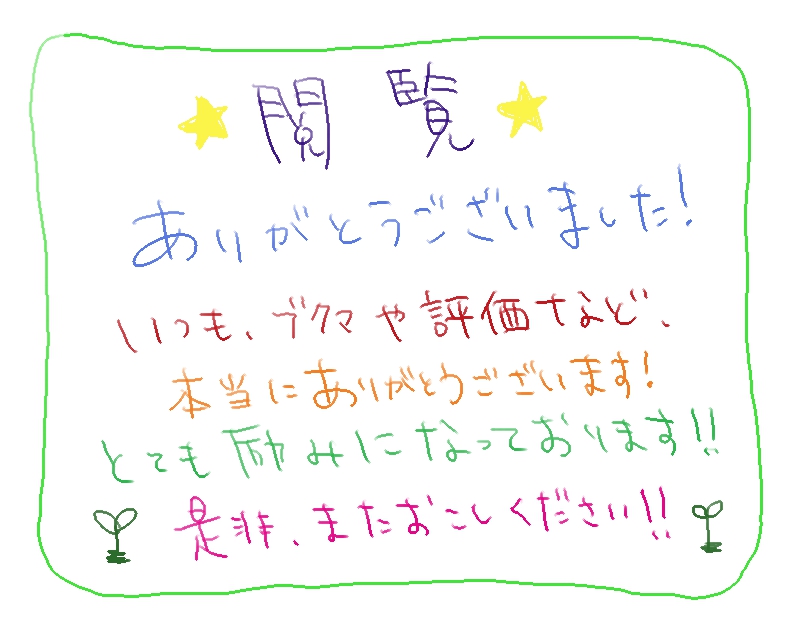 閲覧
ありがとうございました!
いつも、ブクマや評価など、
本当にありがとうございます!
とても励みになっております!!
是非、またおこしください!!